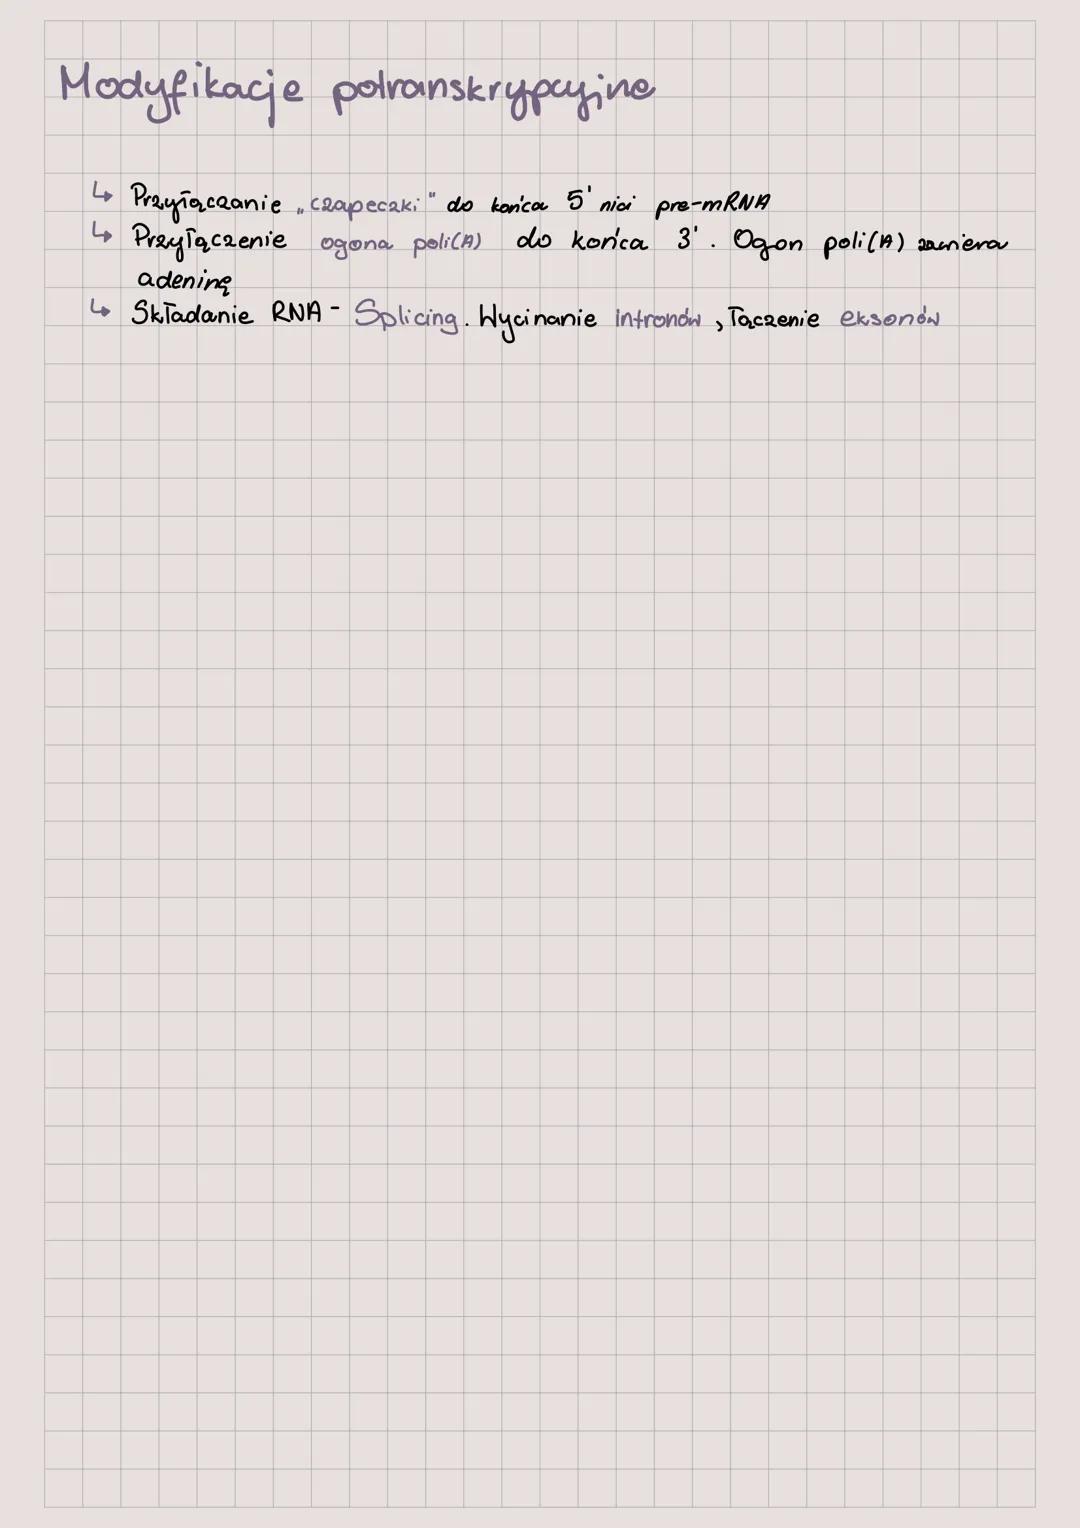 Modyfikacje potranskrypcyjne
↳ Przyłączanie „czapeczki" do końca 5' nici pre-mRNA
↳ Przyłączenie ogona poli(A) do końca 3'. Ogon poli(A) zawiera
adeninę
↳ Składanie RNA - Splicing. Wycinanie intronów, łączenie eksonów